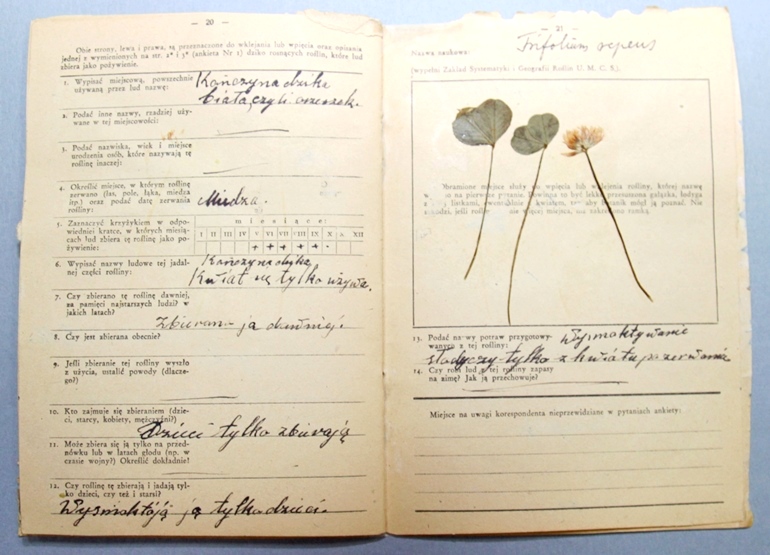 — 20 —
Obie strony, lewa i prawa, są przeznaczone do wklejania lub wpięcia oraz opisania
jednej z wymienionych na str. 2* i 3* (ankieta Nr 1) dziko rosnących roślin, które lud
zbiera jako pożywienie.
1. Wypisać miejscową, powszechnie
używaną przez lud nazwę:
Kończyna dzika
biała, czyli orzeszek.
2. Podać inne nazwy, rzadziej uży-
wane w tej miejscowości:
3. Podać nazwiska, wiek i miejsce
urodzenia osób, które nazywają tę
roślinę inaczej:
4. Określić miejsce, w którym roślinę
zerwano (las, pole, łąka, miedza
itp.) oraz podać datę zerwania
rośliny:
Miedza.
5. Zaznaczyć krzyżykiem w odpo-
wiedniej kratce, w których miesią-
cach lud zbiera tę roślinę jako po-
żywienie:
miesiące:
I II III IV V VI VII VIII IX X XI XII
+ + + + +
6. Wypisać nazwy ludowe tej jadal-
nej części rośliny:
Kończyna dzika
Kwiat się tylko używa.
7. Czy zbierano tę roślinę dawniej,
za pamięci najstarszych ludzi? w
jakich latach?
Zbierano ją dawniej.
8. Czy jest zbierana obecnie?
9. Jeśli zbieranie tej rośliny wyszło
z użycia, ustalić powody (dlacze-
go?)
10. Kto zajmuje się zbieraniem (dzie-
ci, starcy, kobiety, mężczyźni?)
Dzieci tylko zbierają
11. Może zbiera się ją tylko na przed-
nówku lub w latach głodu (np. w
czasie wojny?) Określić dokładnie?
12. Czy roślinę tę zbierają i jadają tyl-
ko dzieci, czy też i starsi?
Wysmoktują ją tylko dzieci.
21
Nazwa naukowa:
Trifolium repens
(wypełni Zakład Systematyki i Geografii Roślin U. M. C. S.).
miejsce służy do wpięcia lub wklejenia rośliny, której nazwę
na pierwsze pytanie. Powinna to być lekko przesuszona gałązka, łodyga
listkami, kwiatem, aby botanik mógł ją poznać. Nie
jeśli miejsca, niż zakreślono ramką.
13. Podać nazwy potraw przygotowy-
wanych z tej rośliny:
Wysmoktywanie
słodyczy tylko z kwiatu po zerwaniu
14. Czy robi lud z tej rośliny zapasy
na zimę? Jak ją przechowuje?
Miejsce na uwagi korespondenta nieprzewidziane w pytaniach ankiety: